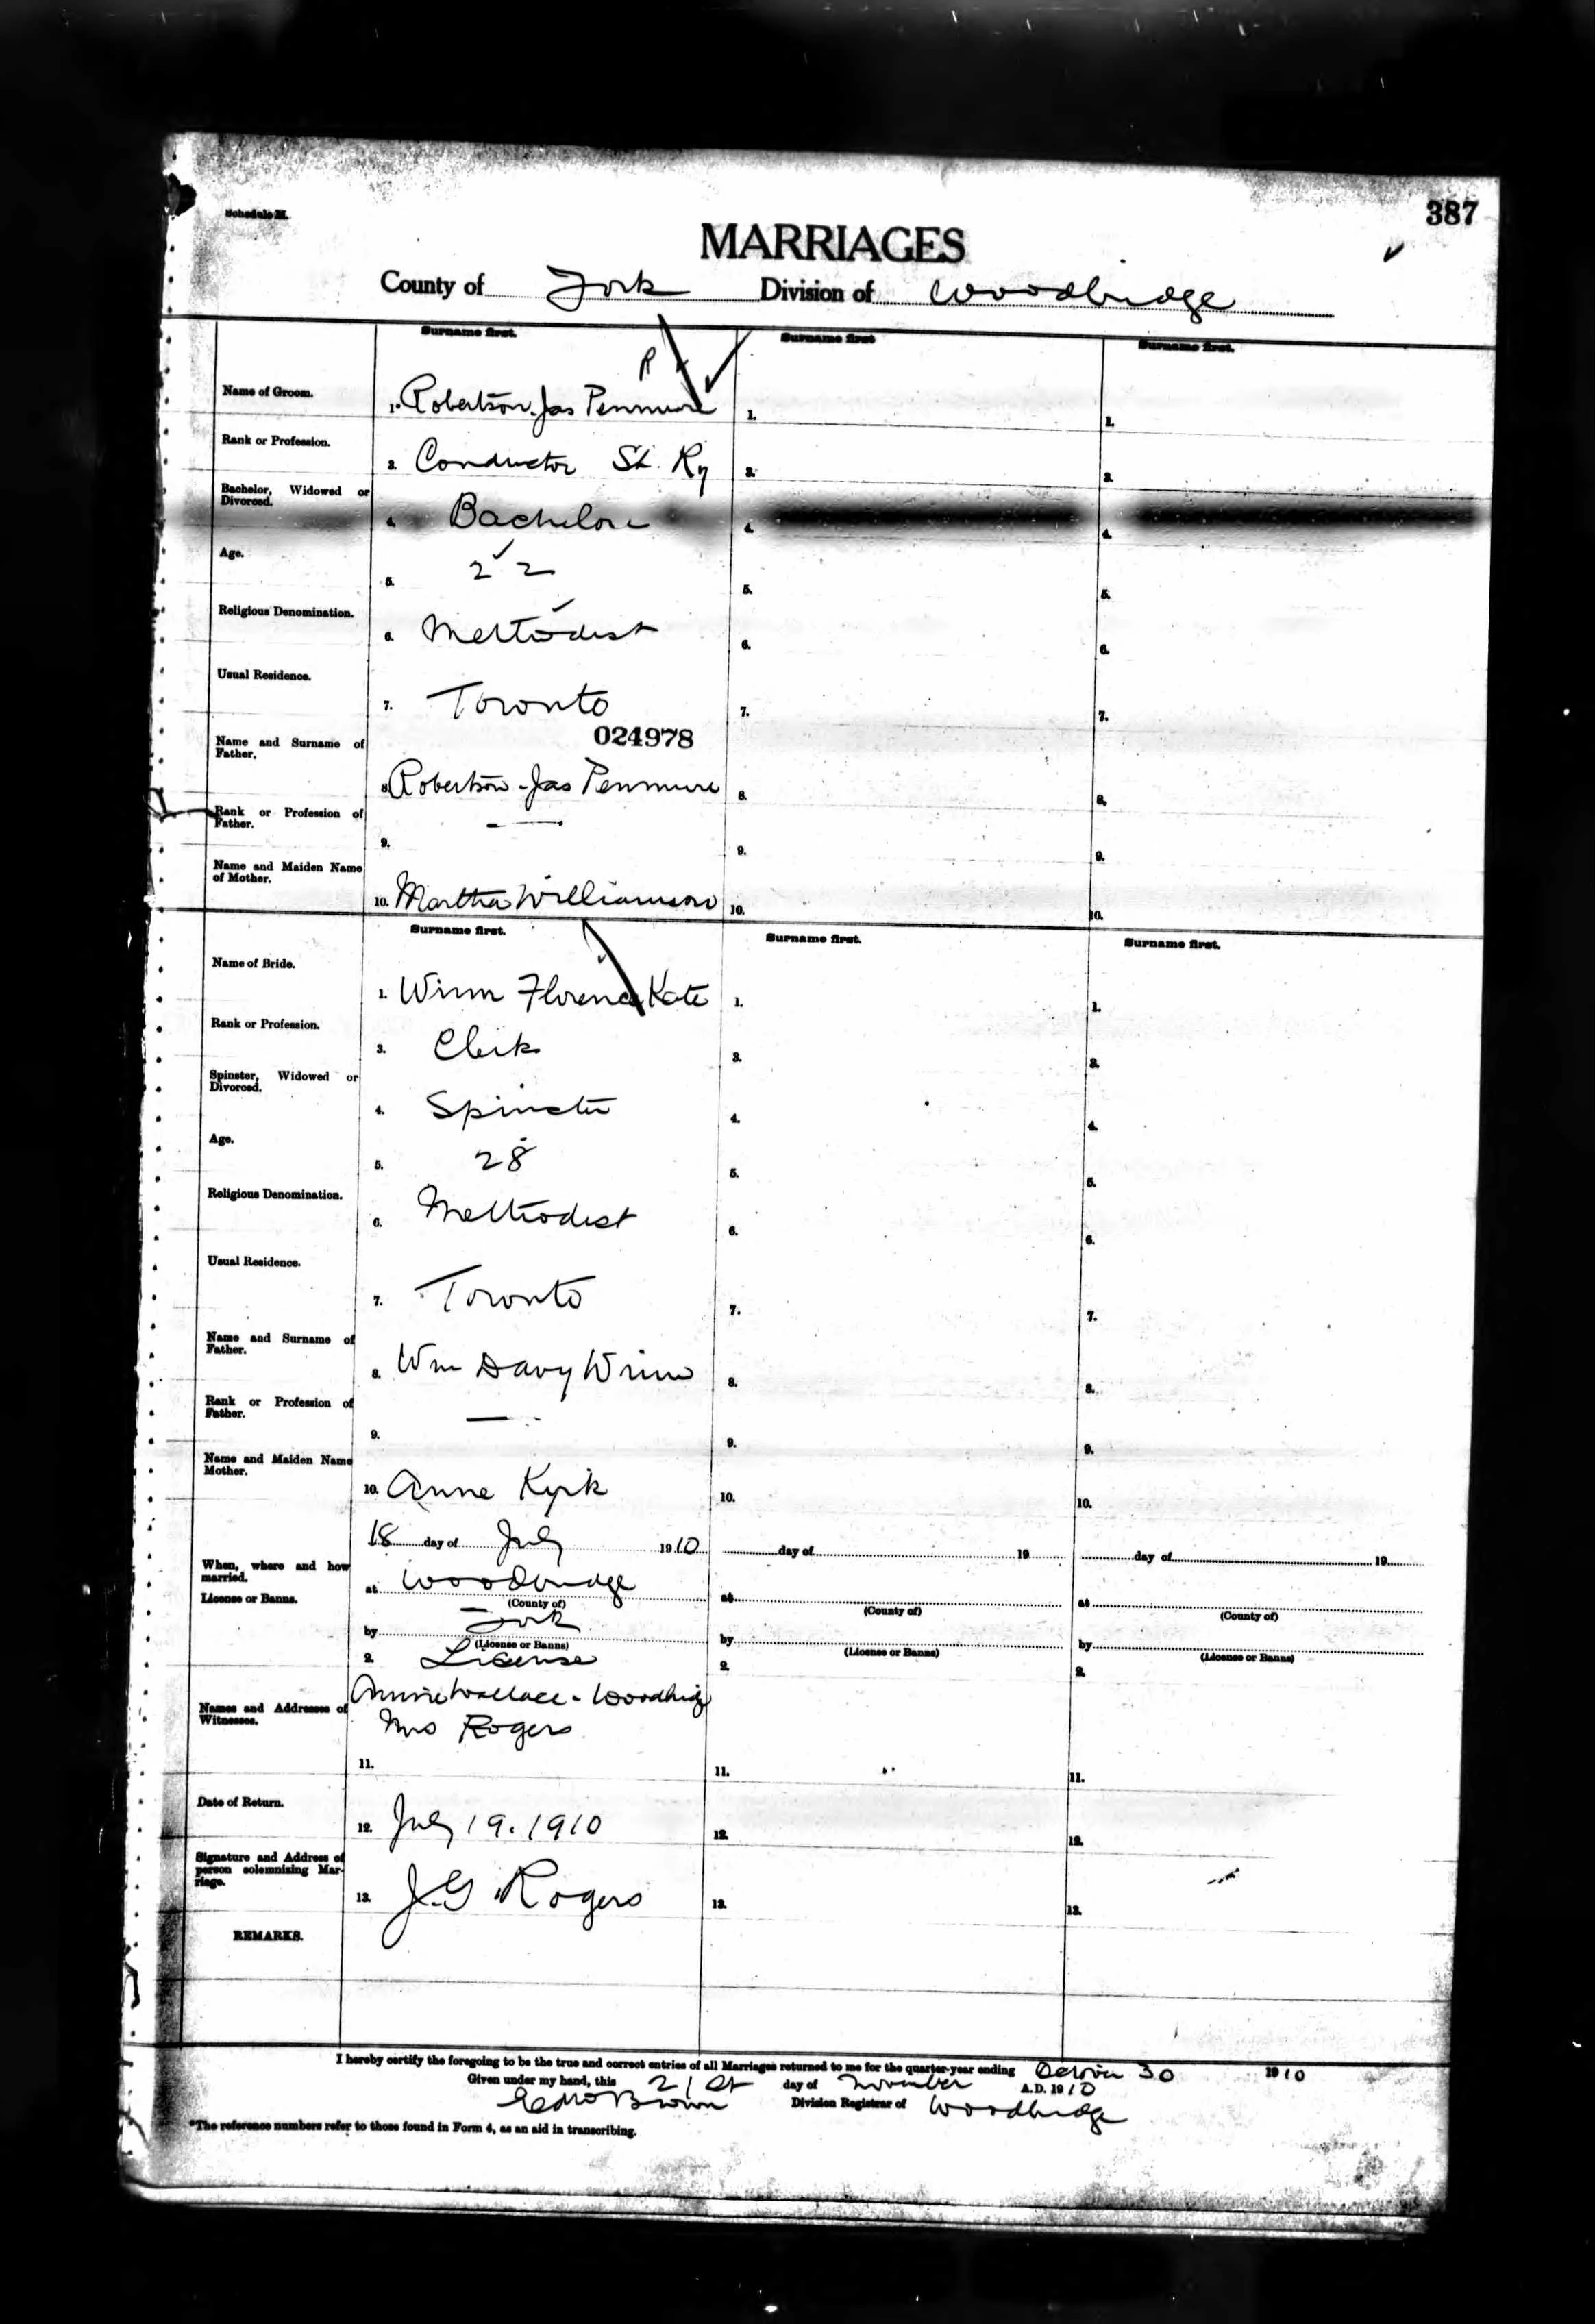 Schedule M.
387
MARRIAGES
County of York Division of Woodbridge
Surname first. Surname first Surname first.
Name of Groom. 1. Robertson Jas Penmure 1. 1.
Rank or Profession. 3. Conductor St. Ry 3. 3.
Bachelor, Widowed or Divorced. 4. Bachelor 4. 4.
Age. 5. 22 5. 5.
Religious Denomination. 6. Methodist 6. 6.
Usual Residence. 7. Toronto 7. 7.
024978
Name and Surname of Father. 8. Robertson - Jas Penmure 8. 8.
Rank or Profession of Father. 9. — 9. 9.
Name and Maiden Name of Mother. 10. Martha Williamson 10. 10.
Surname first. Surname first. Surname first.
Name of Bride. 1. Winn Florence Kate 1. 1.
Rank or Profession. 3. Clerk 3. 3.
Spinster, Widowed or Divorced. 4. Spinster 4. 4.
Age. 5. 28 5. 5.
Religious Denomination. 6. Methodist 6. 6.
Usual Residence. 7. Toronto 7. 7.
Name and Surname of Father. 8. Wm Davy Winn 8. 8.
Rank or Profession of Father. 9. — 9. 9.
Name and Maiden Name Mother. 10. Anne Kyrk 10. 10.
18 day of July 1910 day of 19 day of 19
When, where and how married. at Woodbridge at at
License or Banns. (County of) (County of) (County of)
by York by by
(License or Banns) (License or Banns) (License or Banns)
2. License 2. 2.
Names and Addresses of Witnesses. Annie Wallace - Woodbridge
Mrs Rogers
11. 11. 11.
Date of Return. 12. July 19. 1910 12. 12.
Signature and Address of person solemnizing Marriage. 13. J. G Rogers 13. 13.
REMARKS.
I hereby certify the foregoing to be the true and correct entries of all Marriages returned to me for the quarter-year ending October 30 1910
Given under my hand, this 21st day of November A.D. 1910
Brown Division Registrar of Woodbridge
*The reference numbers refer to those found in Form 4, as an aid in transcribing.